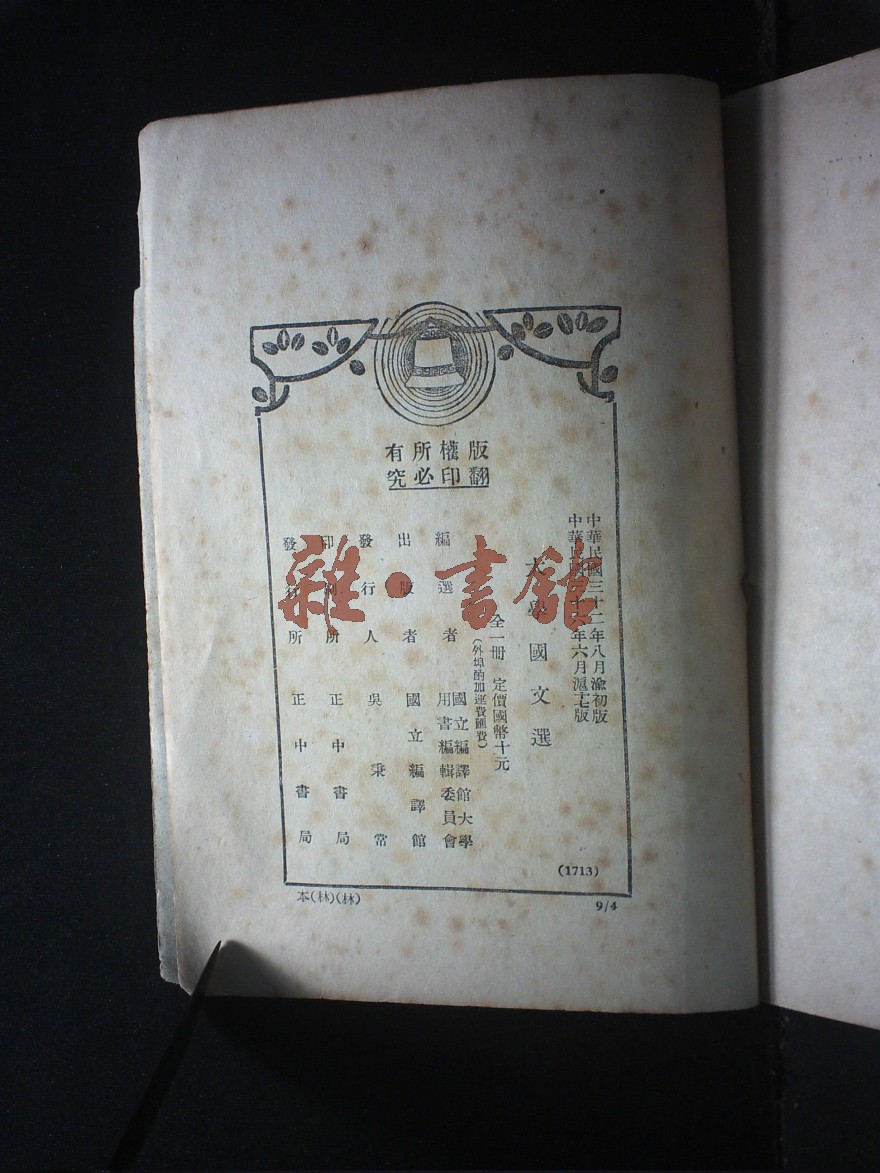 版權所有
翻印必究
中華民國三十二年八月渝初版
中華民國三十六年六月滬十七版
大學國文選
全一冊 定價國幣十元
(外埠酌加運費匯費)
編選者 國立編譯館大學
用書編輯委員會
出版者 國立編譯館
發行人 吳秉常
印刷所 正中書局
發行所 正中書局
(1713)
本(林)(林)
9/4
雜·書館